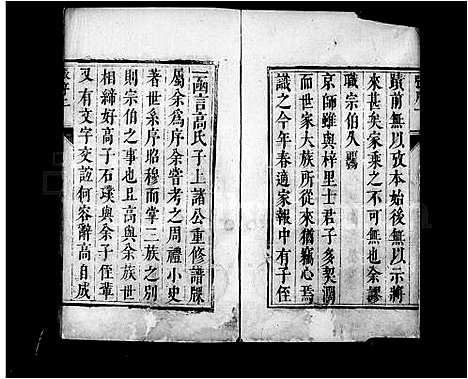 蹟前無以攷本始後無以示將
來甚矣家乘之不可無也余謬
職宗伯久覊
京師雖與梓里士君子多契濶
而世家大族所從來猶竊心焉
識之今年春適家報中有子侄
一函言高氏子上諸公重修譜牒
屬余爲序余嘗考之周禮小史
著世系序昭穆而掌三族之别
則宗伯之事也且高與余族世
相締好高子石璞與余子侄輩
又有文字交誼何容辭高自成